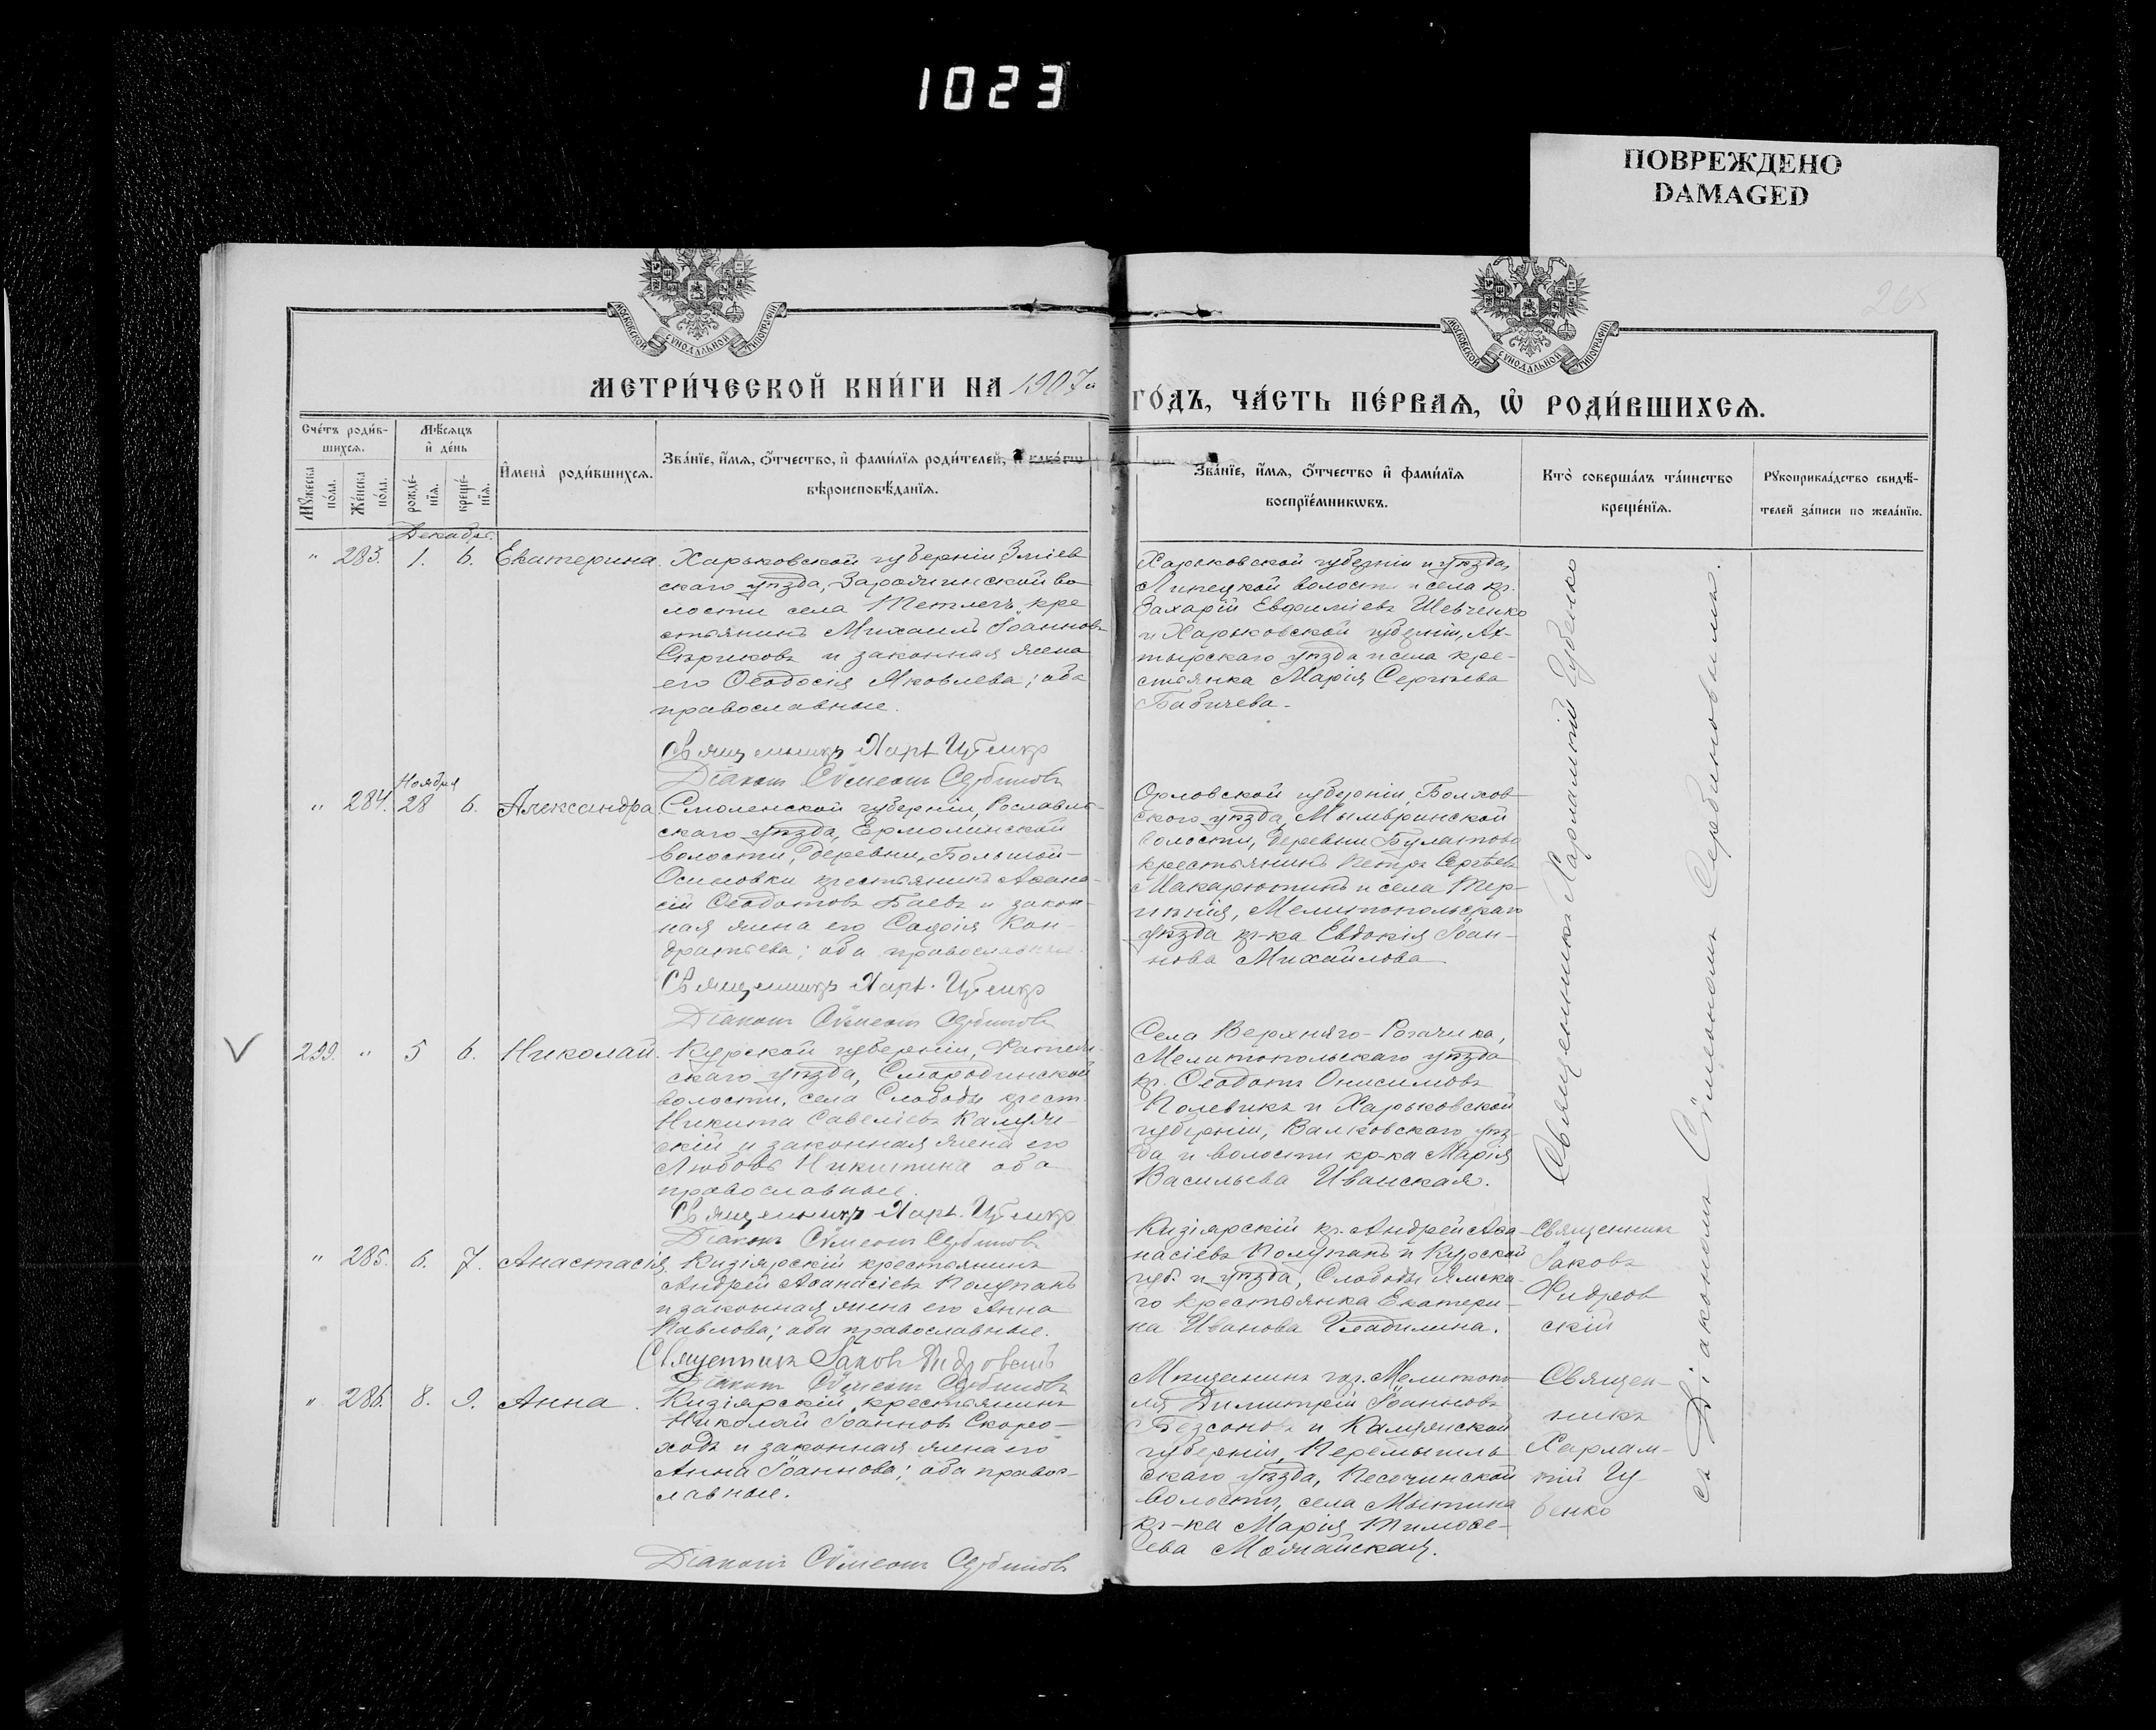 1023
ПОВРЕЖДЕНО
DAMAGED
МОСКОВСКОЙ СУНОДАЛЬНОЙ ТИПОГРАФІИ
МОСКОВСКОЙ СУНОДАЛЬНОЙ ТИПОГРАФІИ
265
МЕТРИ́ЧЕСКОЙ КНИ́ГИ НА 1907й
ГО́ДЪ, ЧА́СТЬ ПЕ́РВАѦ, Ѡ РОДИ́ВШИХСѦ.
Сче́тъ роди́в-
шихсѧ.
Мꙋжеска
по́ла.
Же́нска
по́ла.
Мѣ́сѧцъ
и҆ де́нь
рожде́-
нїѧ.
креще́-
нїѧ.
И҆мена̀ роди́вшихсѧ.
Зва́нїе, и҆́мѧ, ѻ҆́тчество, и҆ фами́лїѧ роди́телей, и҆ како́гѡ
вѣроисповѣ́данїѧ.
Зва́нїе, и҆́мѧ, ѻ҆́тчество и҆ фами́лїѧ
воспрїе́мникѡвъ.
Кто̀ соверша́лъ та́инство
креще́нїѧ.
Рꙋкоприкла́дство свидѣ́-
телей за́писи по жела́нїю.
Декабря.
" 283. 1. 6. Екатерина.
Харьковской губерніи Зміев
скаго уѣзда, во
лости села кре
стьянинъ Михаилъ Іоанновъ
Сѣриковъ и законная жена
его Ѳеодосія Яковлева; оба
православные.
Священникъ Харл. Губенко
Діаконъ Сѵмеонъ Сербиновъ
Харьковской губерніи и уѣзда,
Липецкой волости и села кр.
Захарій Евфиміевъ Шевченко
и Харьковской губерніи, Ах-
тырскаго уѣзда и села кре-
стьянка Марія Сергѣева
Бабичева.
Ноября
" 284. 28 6. Александра
Смоленской губерніи, Рославль-
скаго уѣзда, Ермолинской
волости, деревни Большой-
Осиновки крестьянинъ Аѳана-
сій Ѳеодотовъ Баевъ и закон-
ная жена его Софія Кон-
дратьева; оба православные.
Священникъ Харл. Губенко
Діаконъ Сѵмеонъ Сербиновъ
Орловской губерніи, Болхов-
скаго уѣзда,
волости, деревни Булатово
крестьянинъ Петръ Сергѣевъ
Макарютинъ и села Тер-
пѣнія, Мелитопольскаго
уѣзда кр-ка Евдокія Іоан-
нова Михайлова
Священникъ Харлампій Губенко
299. " 5 6. Николай.
Курской губерніи,
скаго уѣзда, Смородинской
волости, села Слободы крест.
Никита Савеліевъ Калуж-
скій и законная жена его
Любовь Никитина оба
православные.
Священникъ Харл. Губенко
Діаконъ Сѵмеонъ Сербиновъ
Села Верхняго-Рогачика,
Мелитопольскаго уѣзда
кр. Ѳеодотъ Онисимовъ
Полевикъ и Харьковской
губерніи, Валковскаго уѣз-
да и волости кр-ка Марія
Васильева Иванская.
" 285. 6. 7. Анастасія
Кизіярскій крестьянинъ
Андрей Аѳанасіевъ Полупанъ
и законная жена его Анна
Павлова; оба православные.
Священникъ Іаковъ
Діаконъ Сѵмеонъ Сербиновъ
Кизіярскій кр. Андрей Аѳа-
насіевъ Полупанъ и Курской
губ. и уѣзда, Слободы Ямска-
го крестьянка Екатери-
на Иванова Гладилина.
Священникъ
Іаковъ
скій
" 286. 8. 9. Анна.
Кизіярскій крестьянинъ
Николай Іоанновъ Скоро-
ходъ и законная жена его
Анна Іоаннова; оба правос-
лавные.
Діаконъ Сѵмеонъ Сербиновъ
Мѣщанинъ гор. Мелитопо-
ля Димитрій Іоанновъ
Безсоновъ и Калужской
губерніи, Перемышль-
скаго уѣзда, Песочинской
волости, села Мытина
кр-ка Марія Тимоѳе-
ева Можайская.
Священ-
никъ
Харлам-
пій Гу
бенко
съ Діакономъ Сѵмеономъ Сербиновымъ.